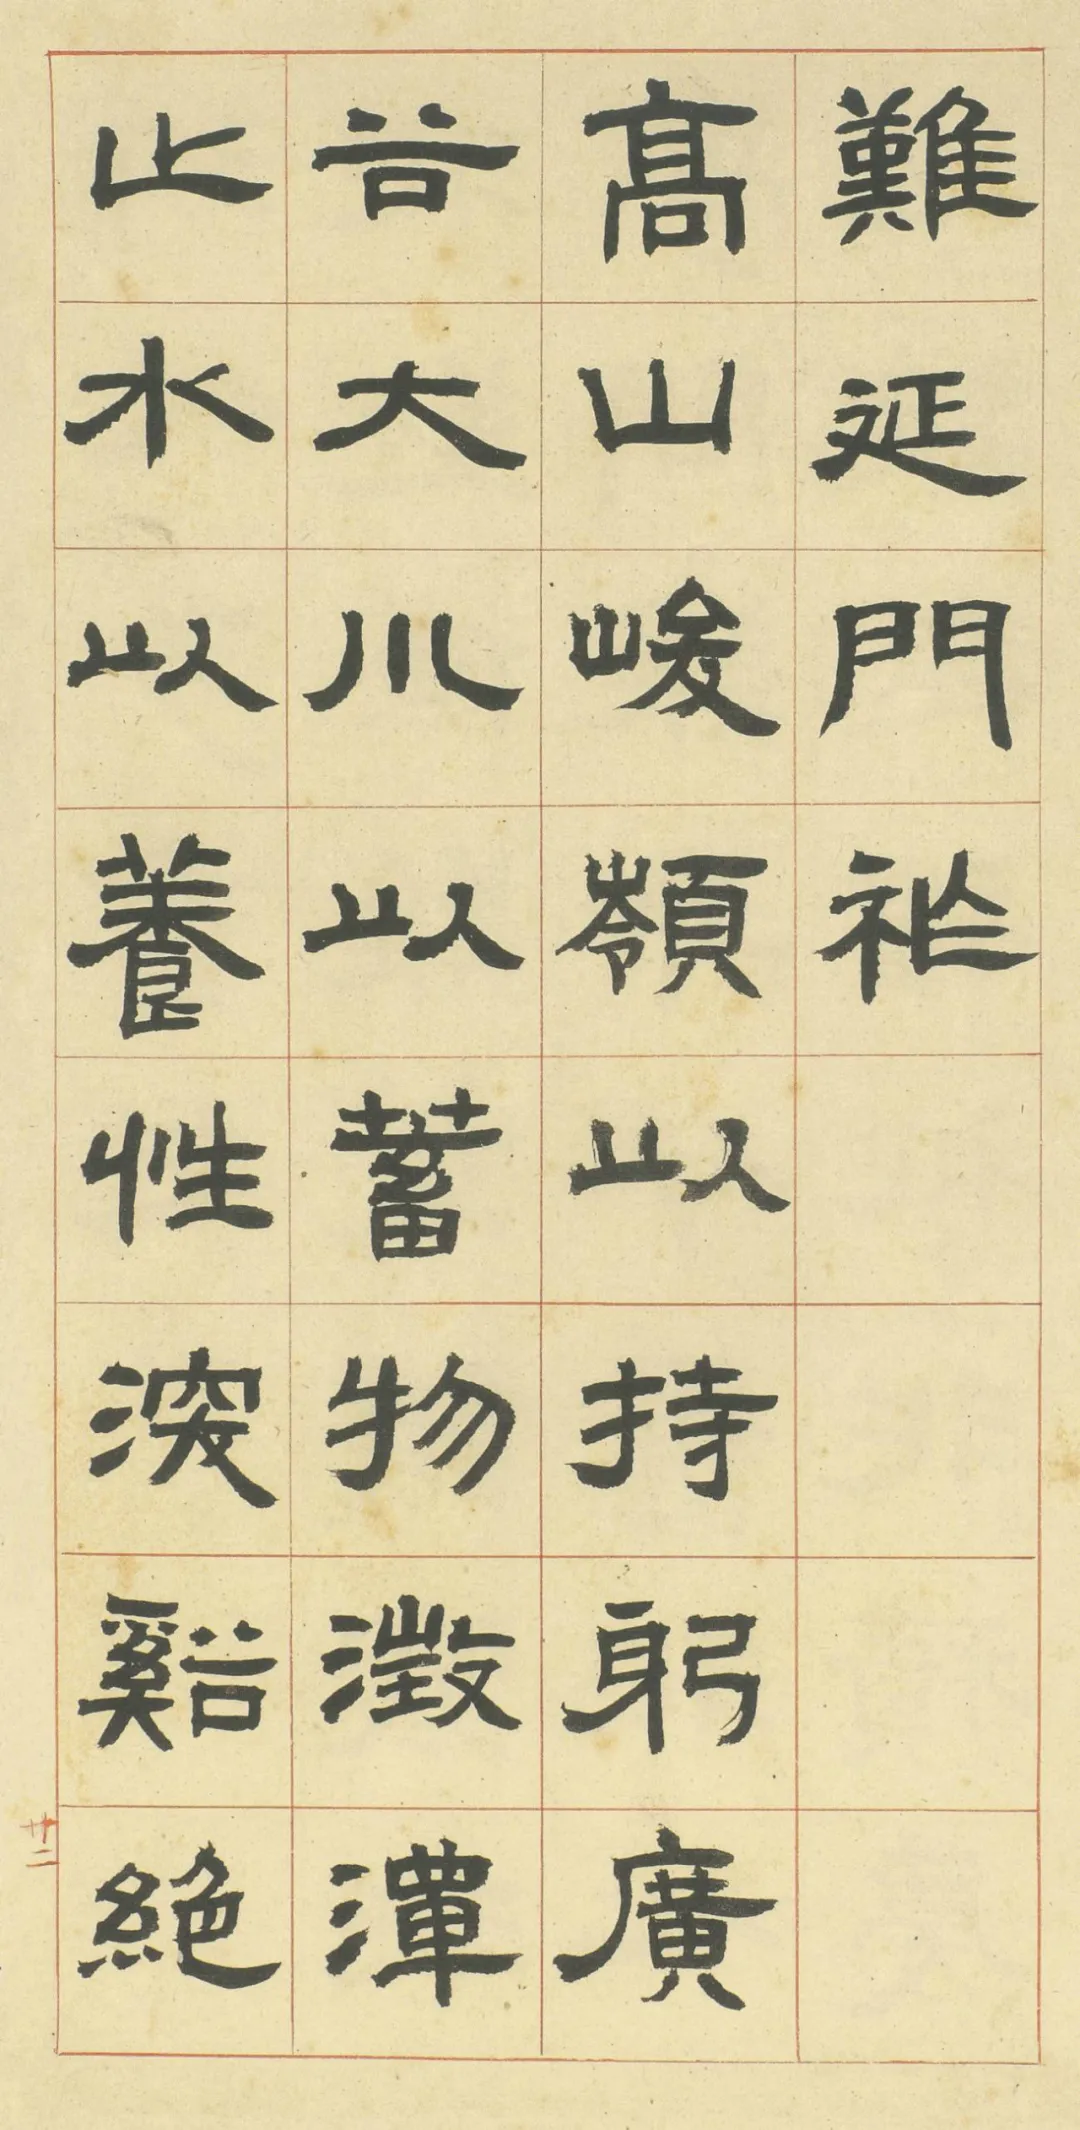 難延門祚
高山峻嶺以持躬廣
谷大川以蓄物澂潭
止水以養性深谿絕
廿二